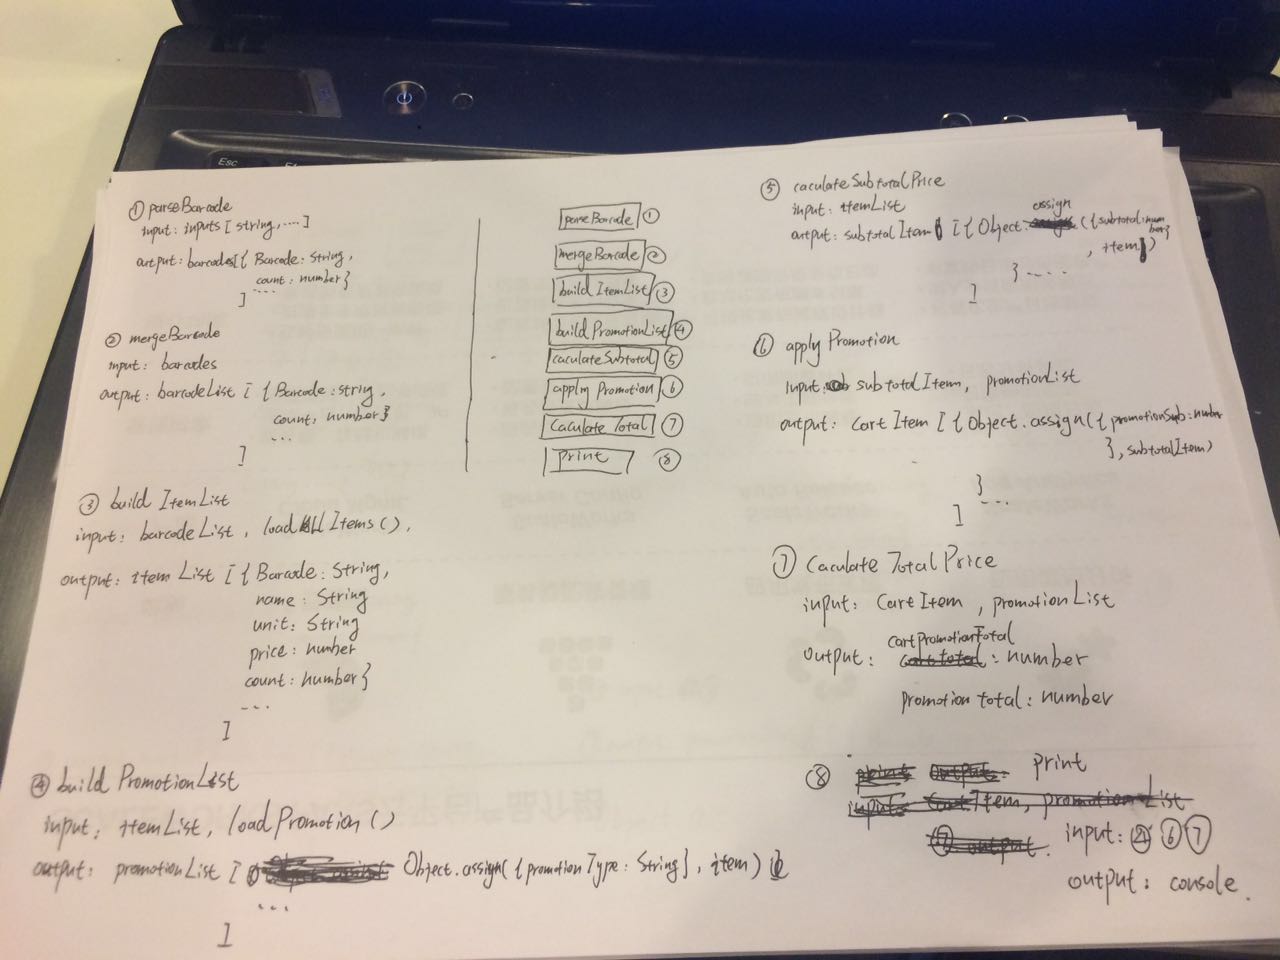 Esc
① parseBarcode
input: inputs [ string, ....]
output: barcodes[{ Barcode: String,
count: number}
...
]
② mergeBarcode
input: barcodes
output: barcodeList [ { Barcode: string,
count, number}
...
]
③ build ItemList
input: barcodeList, loadAllItems(),
output: item List [ { Barcode: String,
name: String
unit: String
price: number
count: number}
...
]
④ build PromotionList
input: itemList, loadPromotion()
output: promotionList [ Object.assign({promotionType: String}, item)
...
]
parseBarcode ①
mergeBarcode ②
build ItemList ③
build PromotionList ④
caculateSubtotal ⑤
apply Promotion ⑥
Caculate Total ⑦
print ⑧
⑤ caculateSubtotalPrice
input: itemList
assign
output: subtotalItem [ { Object. ({subtotal: num
ber}
, item)
} ....
]
⑥ apply Promotion
input: subtotalItem, promotionList
output: CartItem [ { Object.assign({ promotionSub: number
}, subtotalItem)
}
...
]
⑦ Caculate Total Price
input: CartItem, promotionList
cartPromotionTotal
output: cart total : number
promotion total: number
⑧ print output: print
input: Cart Item, promotion List
⑦ output. input: ④ ⑥ ⑦
output: console.